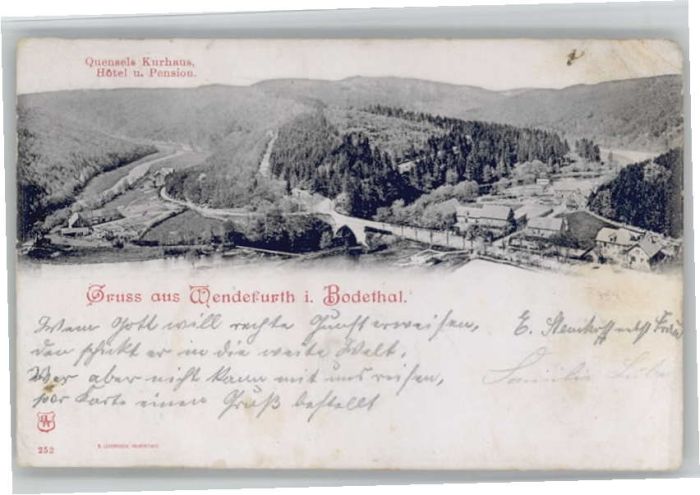 Quensels Kurhaus,
Hôtel u. Pension.
Gruss aus Wendefurth i. Bodethal.
Wem Gott will rechte Gunst erweisen,
den schickt er in die weite Welt.
Wer aber nicht kann mit uns reisen,
per Karte einen Gruß bestellt
E.
Familie
252